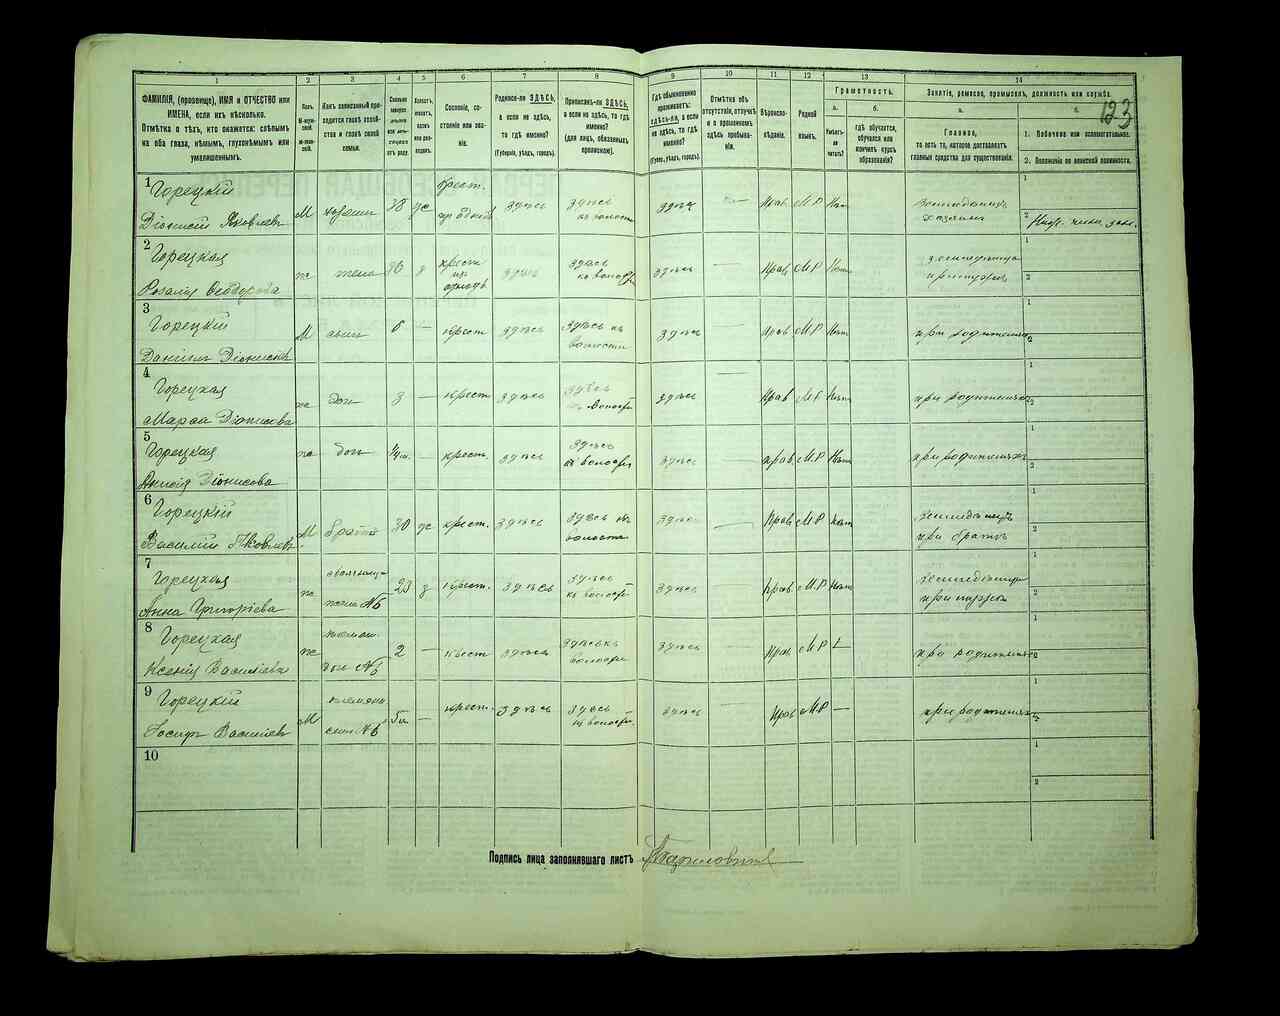 123
1
2
3
4
5
6
7
8
9
10
11
12
13
14
ФАМИЛІЯ, (прозвище), ИМЯ и ОТЧЕСТВО или
ИМЕНА, если ихъ нѣсколько.
Отмѣтка о тѣхъ, кто окажется: слѣпымъ
на оба глаза, нѣмымъ, глухонѣмымъ или
умалишеннымъ.
Полъ.
М-муж-
ской.
Ж-жен-
скій.
Какъ записанный при-
ходится главѣ хозяй-
ства и главѣ своей
семьи.
Сколько
минуло
лѣтъ
или мѣся-
цевъ
отъ роду.
Холостъ,
женатъ,
вдовъ
или раз-
веденъ.
Сословіе, со-
стояніе или зва-
ніе.
Родился-ли ЗДѢСЬ,
а если не здѣсь,
то гдѣ именно?
(Губернія, уѣздъ, городъ).
Приписанъ-ли ЗДѢСЬ,
а если не здѣсь, то гдѣ
именно?
(для лицъ, обязанныхъ
припискою).
Гдѣ обыкновенно
проживаетъ:
здѣсь-ли, а если
не здѣсь, то гдѣ
именно?
(Губер., уѣздъ, городъ).
Отмѣтка объ
отсутствіи, отлучкѣ
и о временномъ
здѣсь пребыва-
ніи.
Вѣроиспо-
вѣданіе.
Родной
языкъ.
Грамотность.
а.
Умѣетъ-
ли
читать?
б.
гдѣ обучается,
обучался или
кончилъ курсъ
образованія?
Занятіе, ремесло, промыселъ, должность или служба.
а.
Главное,
то есть то, которое доставляетъ
главныя средства для существованія.
б.
1. Побочное или вспомогательное.
2. Положеніе по воинской повинности.
1
Горецкій
Діонисій Яковлевъ
М
хозяинъ
38
же
крест.
здѣсь
здѣсь
къ волости
здѣсь
Прав
М.Р
Нѣт
хозяинъ
1
2
2
Горецкая
же
жена
крест
здѣсь
здѣсь
къ волости
здѣсь
Прав
М.Р
Нѣт
при мужѣ
1
2
3
Горецкій
Даніилъ Діонисіев
М
сынъ
6
—
крест
здѣсь
здѣсь къ
волости
здѣсь
—
Прав
М.Р
Нѣт
при родителяхъ
1
2
4
Горецкая
Марѳа Діонисова
же
доч
3
—
крест
здѣсь
здѣсь
къ волости
здѣсь
—
Прав
М.Р
Нѣт
при родителяхъ
1
2
5
Горецкая
Анисія Діонисова
же
доч
—
крест.
здѣсь
здѣсь
къ волости
здѣсь
—
прав.
М.Р
Нѣт
при родителяхъ
1
2
6
Горецкій
Василій Яковлевъ
М
братъ
30
же
крест.
здѣсь
здѣсь къ
волости
здѣсь
—
Прав
М.Р
Нѣт
при братѣ
1
2
7
Горецкая
Анна Григоріева
же
жена №6
23
з
крест.
здѣсь
здѣсь
къ волости
здѣсь
—
Прав.
М.Р
Нѣт
при мужѣ
1
2
8
Горецкая
Ксенія Василіева
же
доч №6
2
—
крест
здѣсь
здѣсь къ
волости
здѣсь
—
Прав
М.Р
—
при родителях
1
2
9
Горецкій
Іосифъ Василіевъ
М
сынъ №6
—
крест.
здѣсь
здѣсь
къ волости
здѣсь
—
Прав
М.Р
—
при родителях
1
2
10
1
2
Подпись лица заполнявшаго листъ